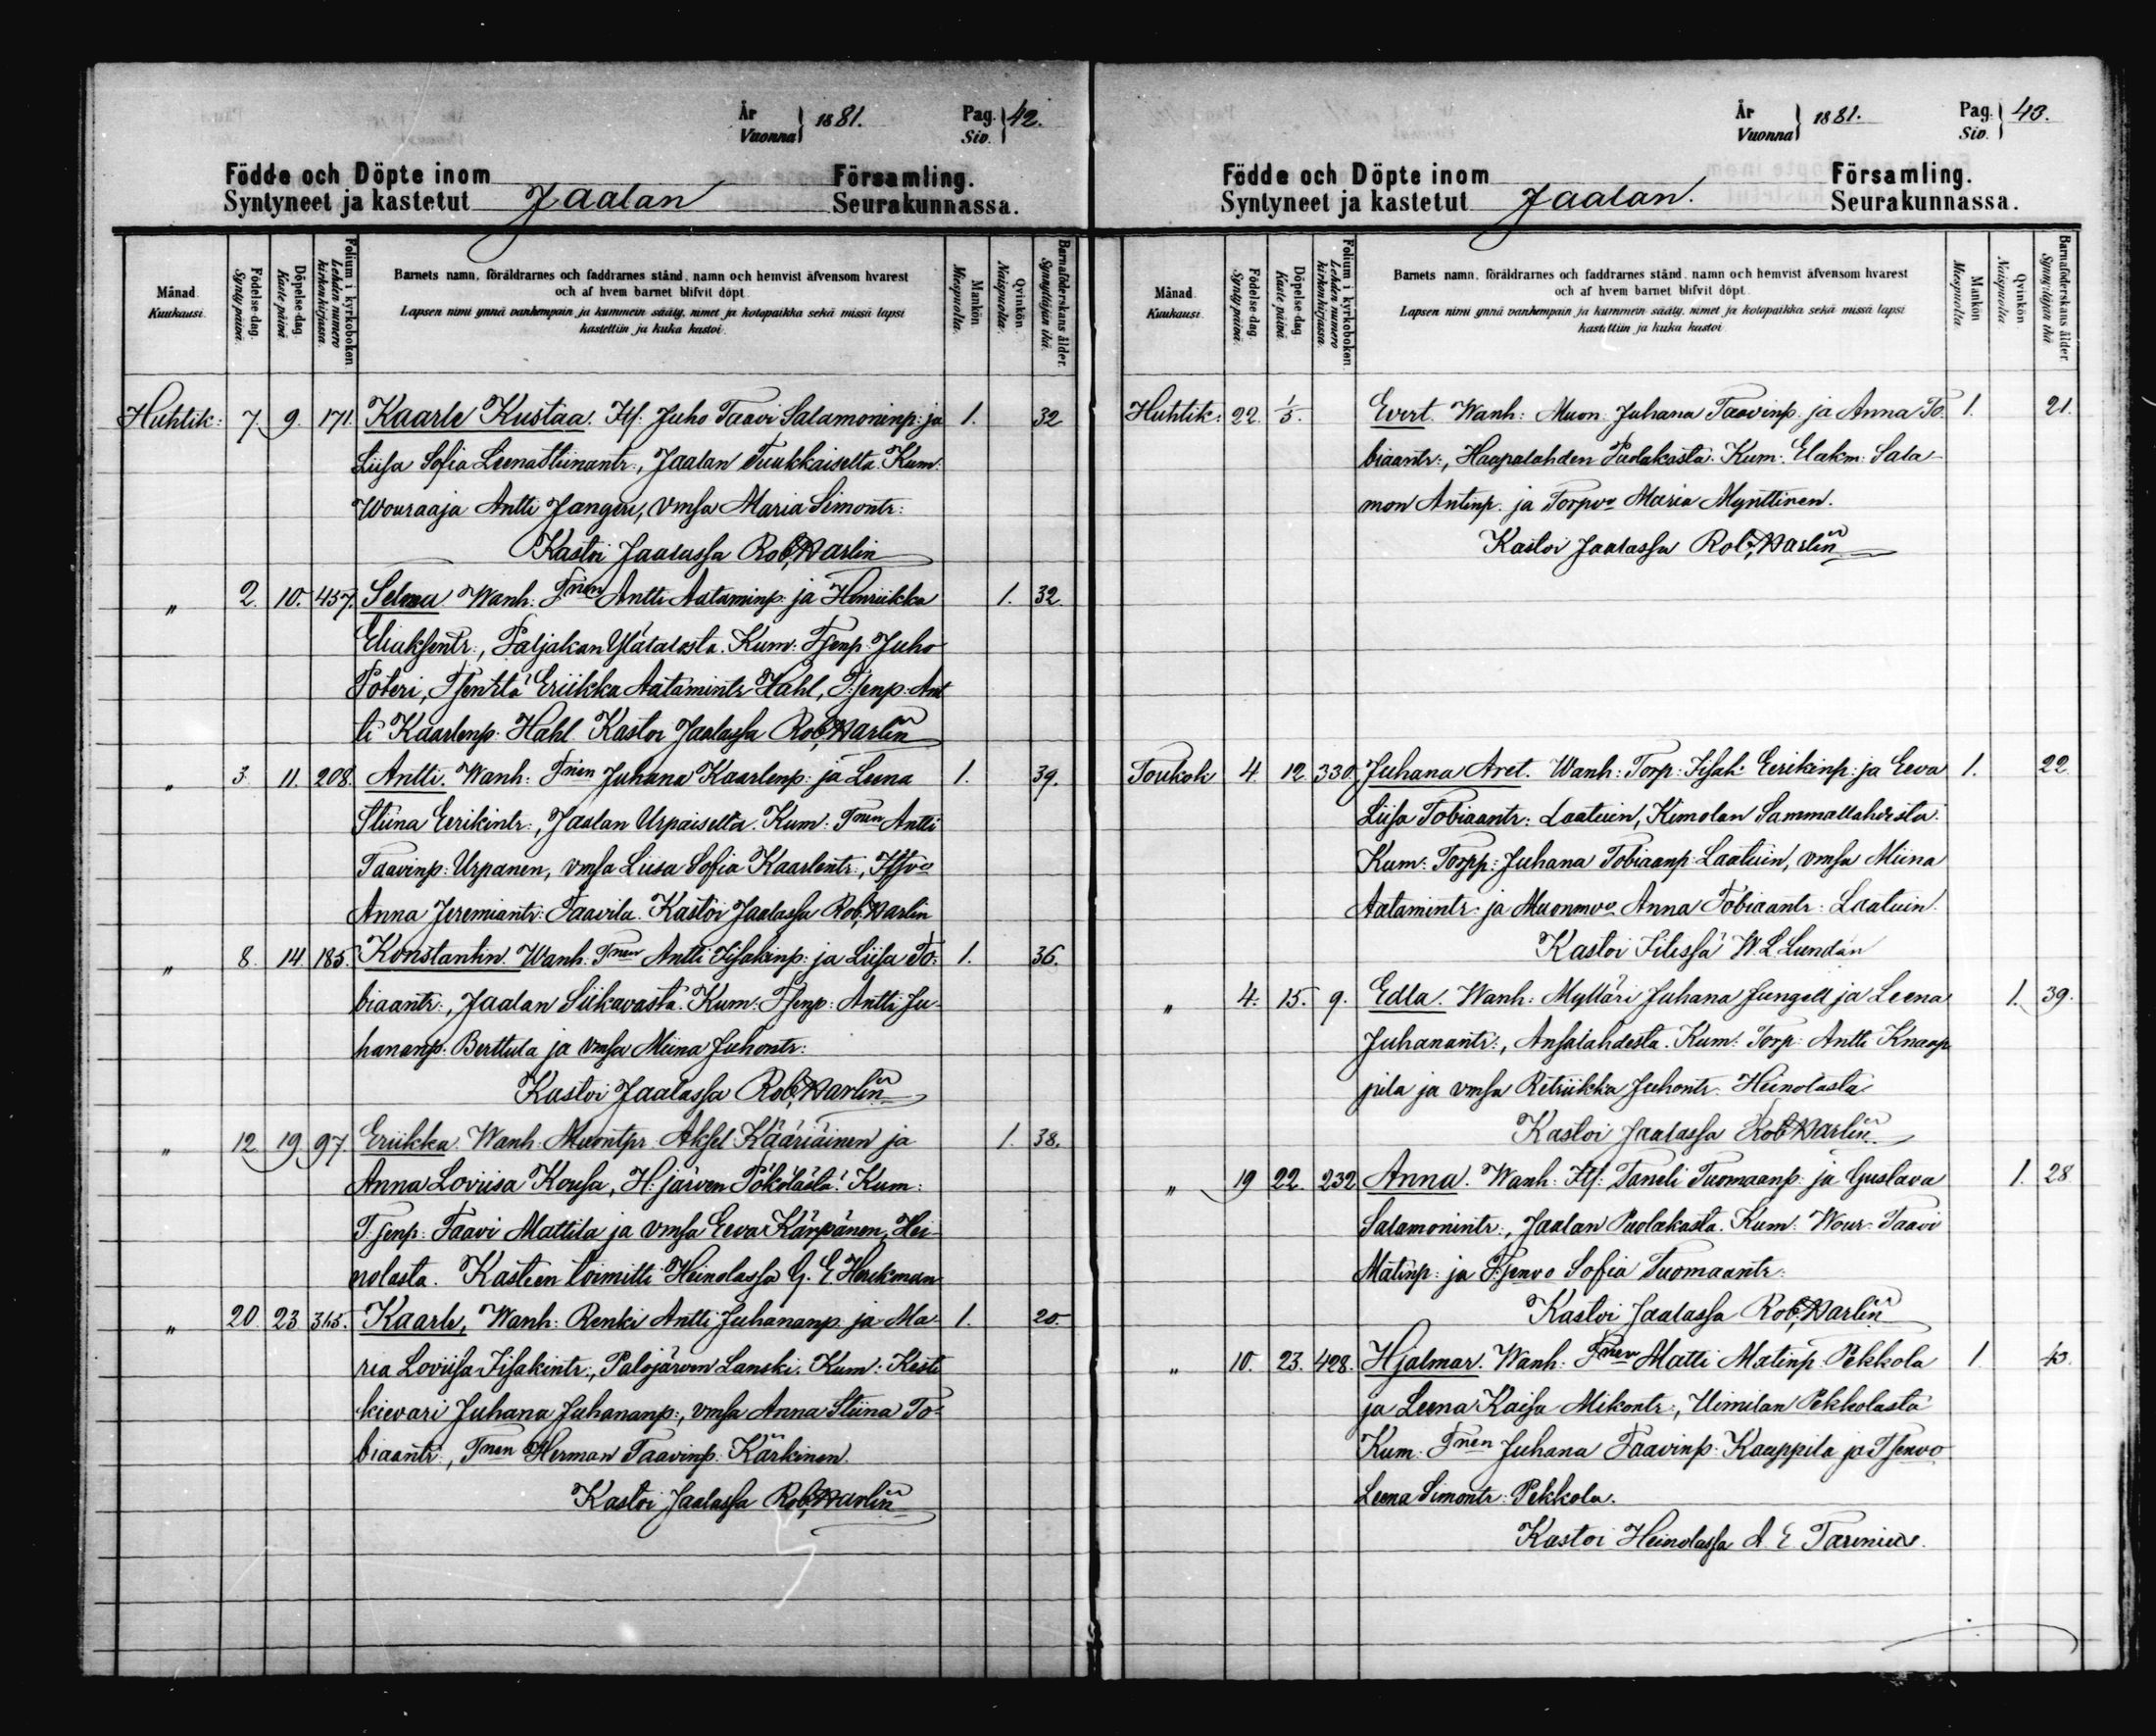 År Vuonna } 1881. Pag. Siv. } 42.
Födde och Döpte inom Församling.
Syntyneet ja kastetut Jaalan Seurakunnassa.
Månad. Kuukausi.
Födelse-dag. Synty päivä.
Döpelse-dag. Kaste päivä.
Folium i kyrkoboken Lehden numero kirkonkirjassa.
Barnets namn, föräldrarnes och faddrarnes stånd, namn och hemvist äfvensom hvarest
och af hvem barnet blifvit döpt.
Lapsen nimi ynnä vanhempain ja kummein sääty, nimet ja kotopaikka sekä missä lapsi
kastettiin ja kuka kastoi.
Mankön Miespuolta.
Qvinkön. Naispuolta.
Barnaföderskans ålder. Synnyttäjän ikä.
Huhtik: 7. 9. 171. Kaarle Kustaa. Itl: Juho Taavi Salamoninp: ja 1. 32
Liisa Sofia Leena Stiinantr:, Jaalan Tuukkaiselta. Kum:
Wouraaja Antti Jangeri, vmsa Maria Simontr:
Kastoi Jaalassa Rob. Warlin
" 2. 10. 457. Selma Wanh: Tnen Antti Aataminp: ja Henriikka 1. 32.
Eliaksentr:, Paljakan Ylätalosta. Kum: Tsenp: Juho
Poteri, Tsenttä Eriikka Aatamintr Hahl, T:senp: Ant
ti Kaarlenp: Hahl. Kastoi Jaalassa Rob. Warlin
" 3. 11. 208. Antti. Wanh: Tnen Juhana Kaarlenp: ja Leena 1. 39.
Stiina Eerikintr:, Jaalan Urpaiselta. Kum: Tnen Antti
Taavinp: Urpanen, vmsa Liisa Sofia Kaarlentr:, Itsvo
Anna Jeremiantr: Taavila. Kastoi Jaalassa Rob. Warlin
" 8. 14. 185. Konstantin. Wanh: Tnen Antti Iisakinp: ja Liisa To: 1. 36.
biaantr:, Jaalan Siikavasta. Kum: Tsenp: Antti Ju-
hananp: Berttula ja vmsa Miina Juhontr:
Kastoi Jaalassa Rob. Warlin
" 12. 19. 97. Eriikka. Wanh: Muontpr. Aksel Kääriäinen ja 1. 38.
Anna Loviisa Kousa, H:järven Pökölästä. Kum:
T:senp: Taavi Mattila ja vmsa Eeva Kärpänen, Hei-
nolasta. Kasteen toimitti Heinolassa G. E.
" 20. 23. 365. Kaarle, Wanh: Renki Antti Juhananp: ja Ma- 1. 20.
ria Loviisa Iisakintr:, Palojärven Lanski. Kum: Kesti
kievari Juhana Juhananp:, vmsa Anna Stiina To-
biaantr:, Tnen Herman Taavinp: Kärkinen.
Kastoi Jaalassa Rob. Warlin
År Vuonna } 1881. Pag. Siv. } 43.
Födde och Döpte inom Församling.
Syntyneet ja kastetut Jaalan. Seurakunnassa.
Månad. Kuukausi.
Födelse-dag. Synty päivä.
Döpelse-dag. Kaste päivä.
Folium i kyrkoboken Lehden numero kirkonkirjassa.
Barnets namn, föräldrarnes och faddrarnes stånd, namn och hemvist äfvensom hvarest
och af hvem barnet blifvit döpt.
Lapsen nimi ynnä vanhempain ja kummein sääty, nimet ja kotopaikka sekä missä lapsi
kastettiin ja kuka kastoi.
Mankön Miespuolta
Qvinkön Naispuolta
Barnaföderskans ålder Synnyttäjän ikä
Huhtik: 22. 1/5. Evert. Wanh: Muon: Juhana Taavinp: ja Anna To: 1. 21.
biaantr:, Haapalahden Puolakasta. Kum: Elakm: Sala-
mon Antinp: ja Torpvo Maria Mynttinen.
Kastoi Jaalassa Rob. Warlin
Toukok 4. 12. 330. Juhana Aret. Wanh: Torp: Iisak Eerikinp: ja Eeva 1. 22.
Liisa Tobiaantr: Laatuin, Kimolan Sammallahdesta.
Kum: Torpp: Juhana Tobiaanp: Laatuin, vmsa Miina
Aatamintr: ja Muonmvo Anna Tobiaantr: Laatuin.
Kastoi Iitissä W. L. Lundán
" 4. 15. 9. Edla. Wanh: Mylläri Juhana Jungell ja Leena 1. 39.
Juhanantr:, Ansalahdesta. Kum: Torp: Antti Knaap
pila ja vmsa Retriikka Juhontr. Heinolasta
Kastoi Jaalassa Rob. Warlin
" 19 22. 232 Anna. Wanh: Itl: Taneli Tuomaanp: ja Gustava 1. 28
Salamonintr:, Jaalan Puolakasta. Kum: Wour: Taavi
Matinp: ja T:senvo Sofia Tuomaantr:
Kastoi Jaalassa Rob. Warlin
" 10. 23. 428. Hjalmar. Wanh: Tnen Matti Matinp: Pekkola 1. 43.
ja Leena Kaisa Mikontr:, Uimilan Pekkolasta
Kum: Tnen Juhana Taavinp: Kauppila ja Tsenvo
Leena Simontr: Pekkola.
Kastoi Heinolassa A. E. Tarenius.